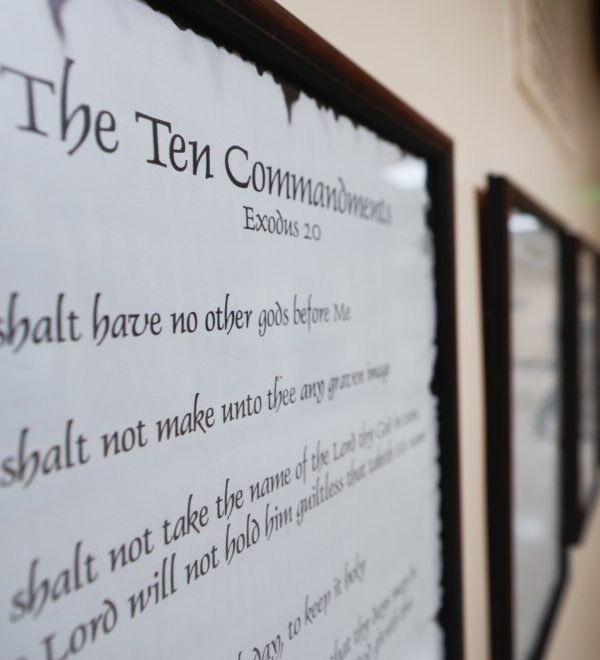 The Ten Commandments
Exodus 20
shalt have no other gods before Me
shalt not make unto thee any graven image
shalt not take the name of the Lord thy God in vain
Lord will not hold him guiltless that taketh His name
day, to keep it holy
that thy days may be